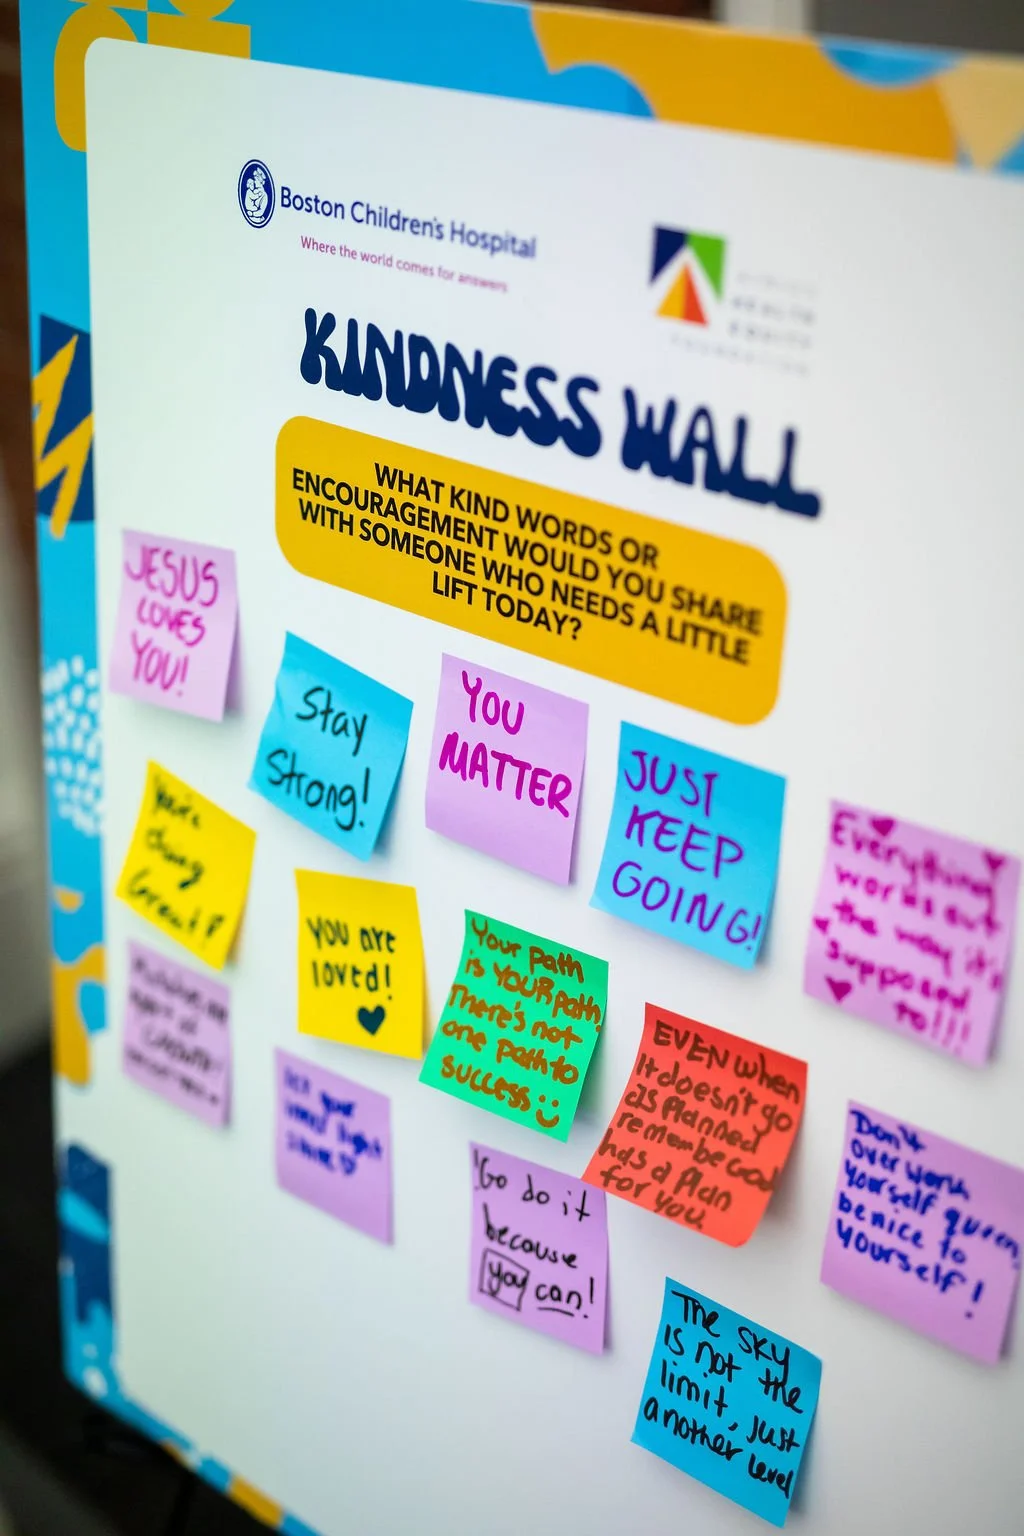 Boston Children's Hospital
Where the world comes for answers
HEALTH
EQUITY
FOUNDATION
KINDNESS WALL
WHAT KIND WORDS OR
ENCOURAGEMENT WOULD YOU SHARE
WITH SOMEONE WHO NEEDS A LITTLE
LIFT TODAY?
JESUS
LOVES
YOU!
Stay
Strong!
YOU
MATTER
JUST
KEEP
GOING!
Everything
works out
the way it's
supposed
to!!!
You're
doing
Great!
YOU are
loved!
Your path
is YOUR path,
There's not
one path to
success
EVEN when
It doesn't go
as Planned
remember God
has a Plan
for you.
let your
light
Go do it
because
you can!
Don't
over work
yourself queen,
be nice to
yourself!
The sky
is not the
limit, just
another level